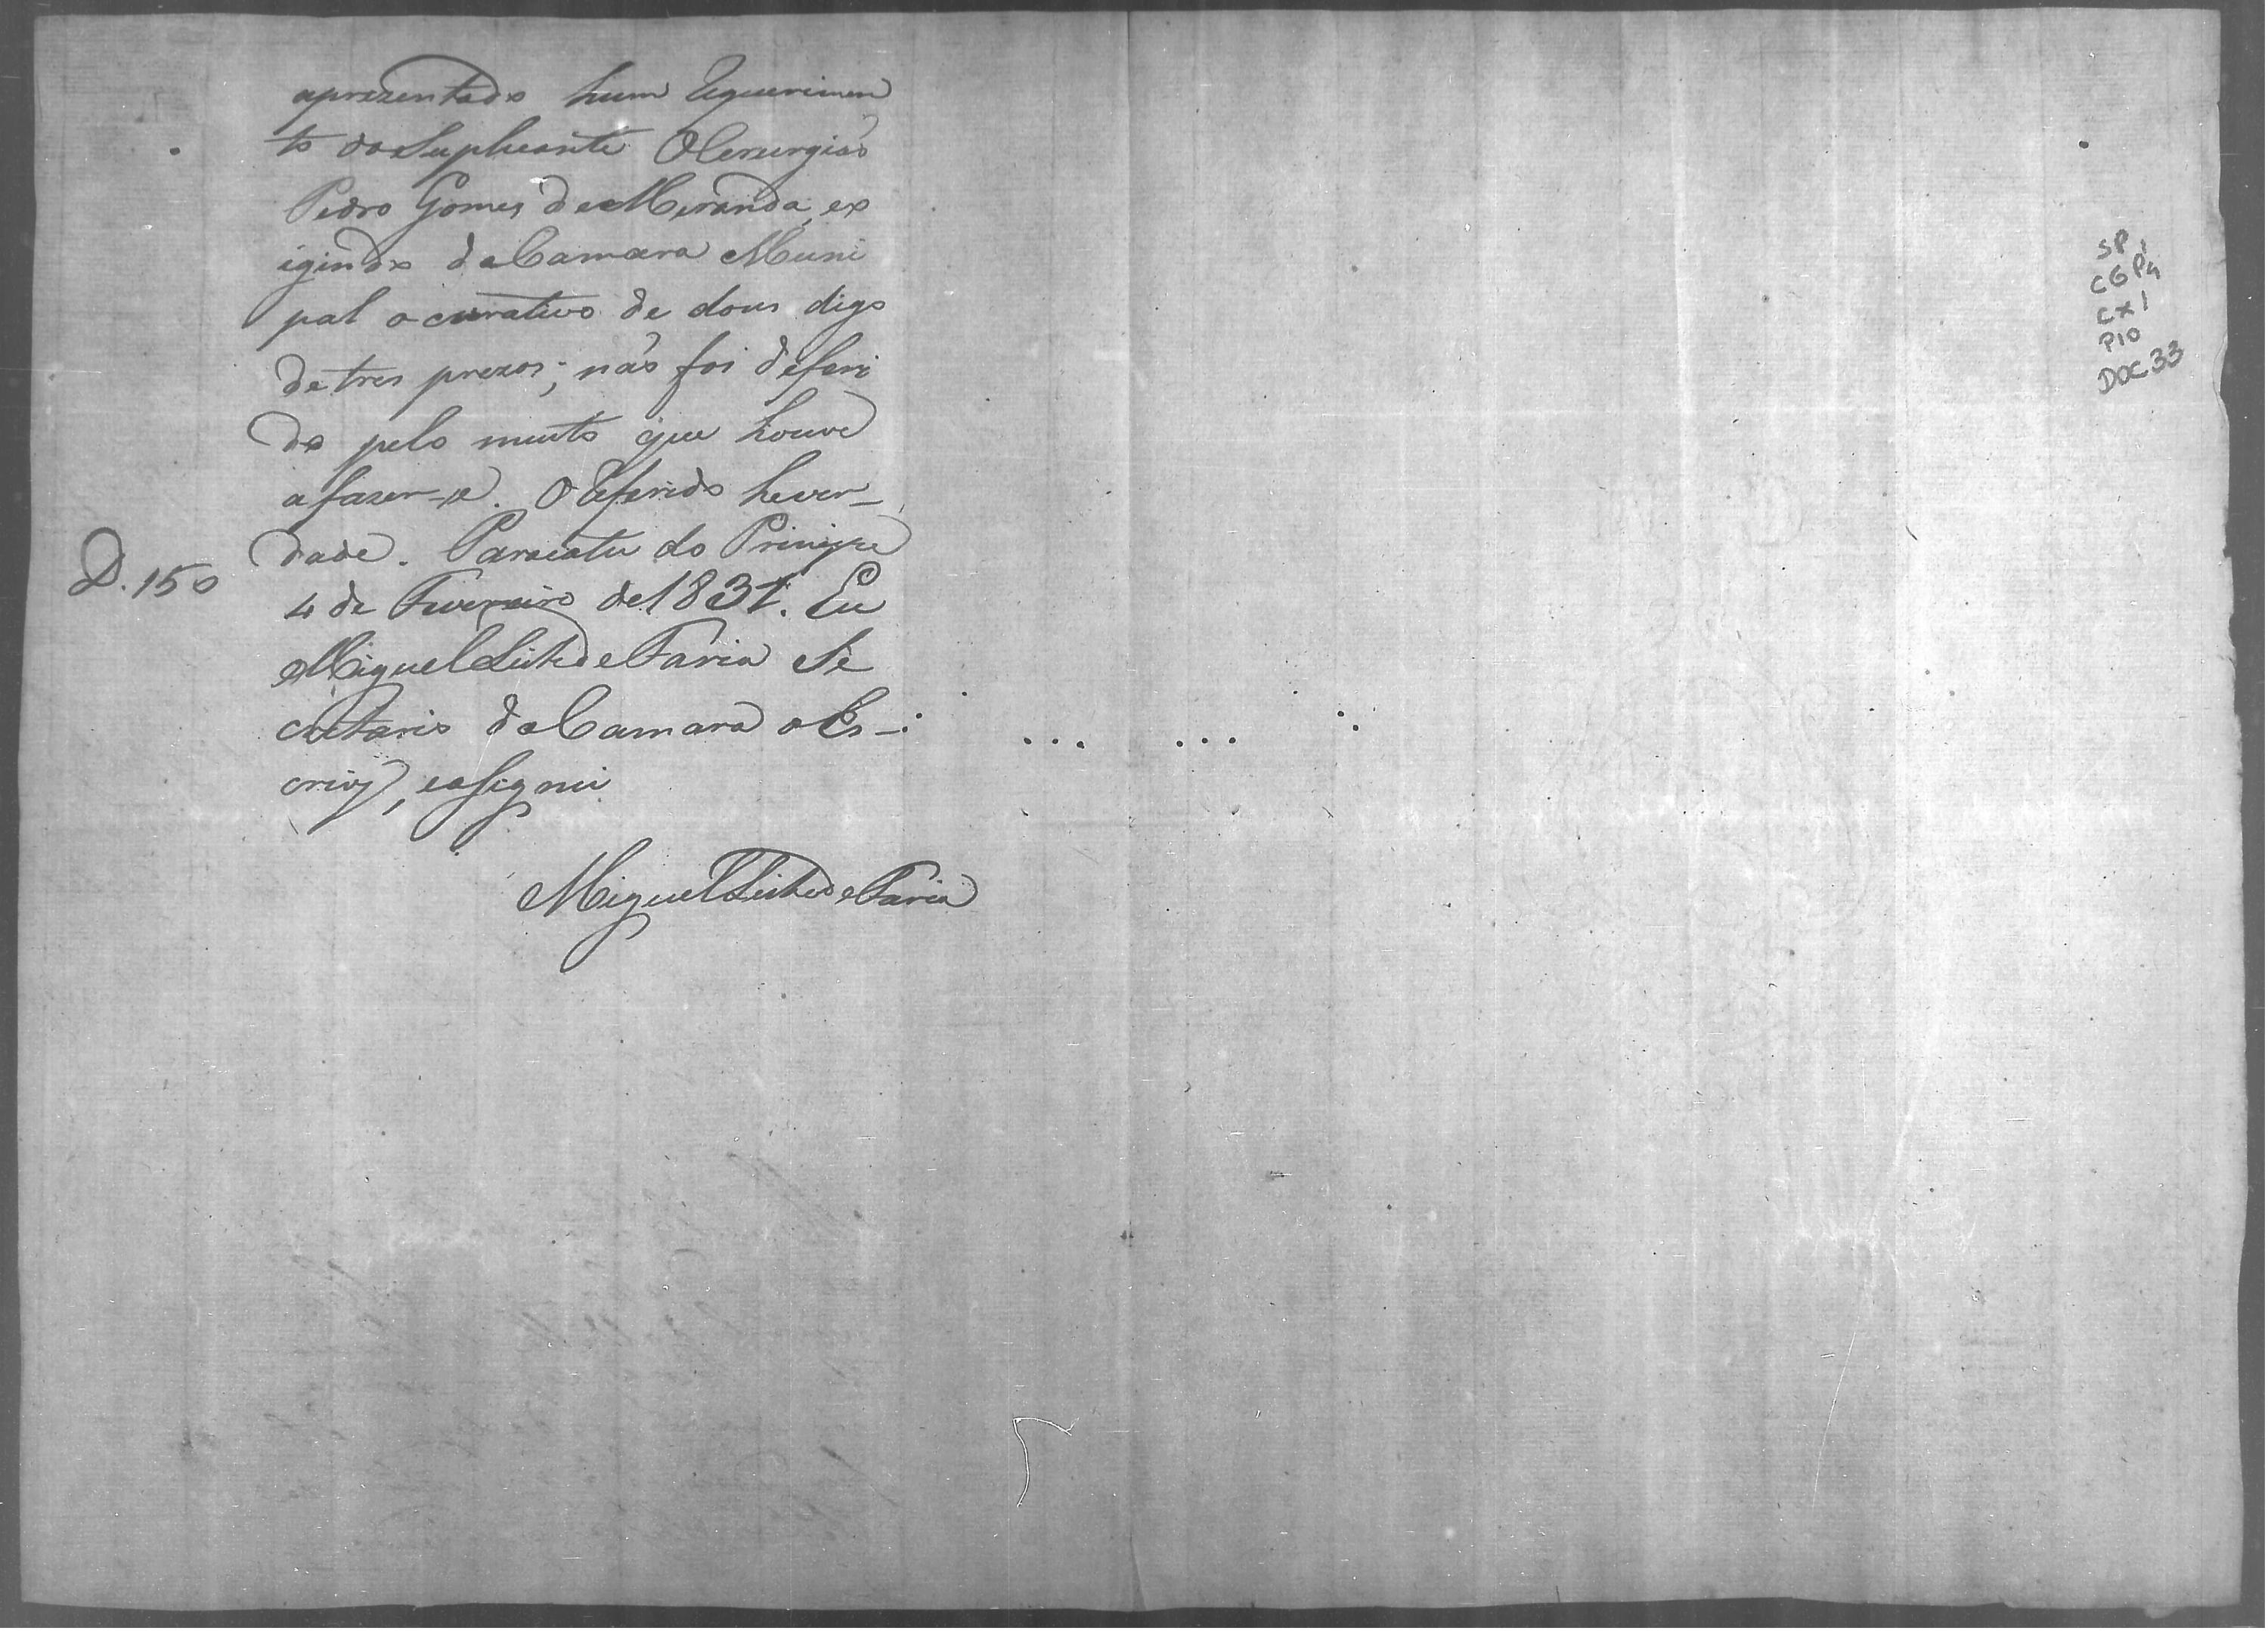 aprezentado hum Requerimen
to do Supleante O Cerurgião
Pedro Gomes de Miranda, ex
igindo da Camara Muni
pal o curativo de dous digo
de tres prezos; não foi deferi
do pelo muito que houve
a fazer-se. O Referido he ver-
dade. Paracatu do Principe
D. 150
4 de Fevereiro de 1831. Eu
Miguel Leite de Faria Se
cretario da Camara o Es-
crivy, e assignei
Miguel Leite de Faria
SP 1
CGP4
CX1
P10
DOC 33